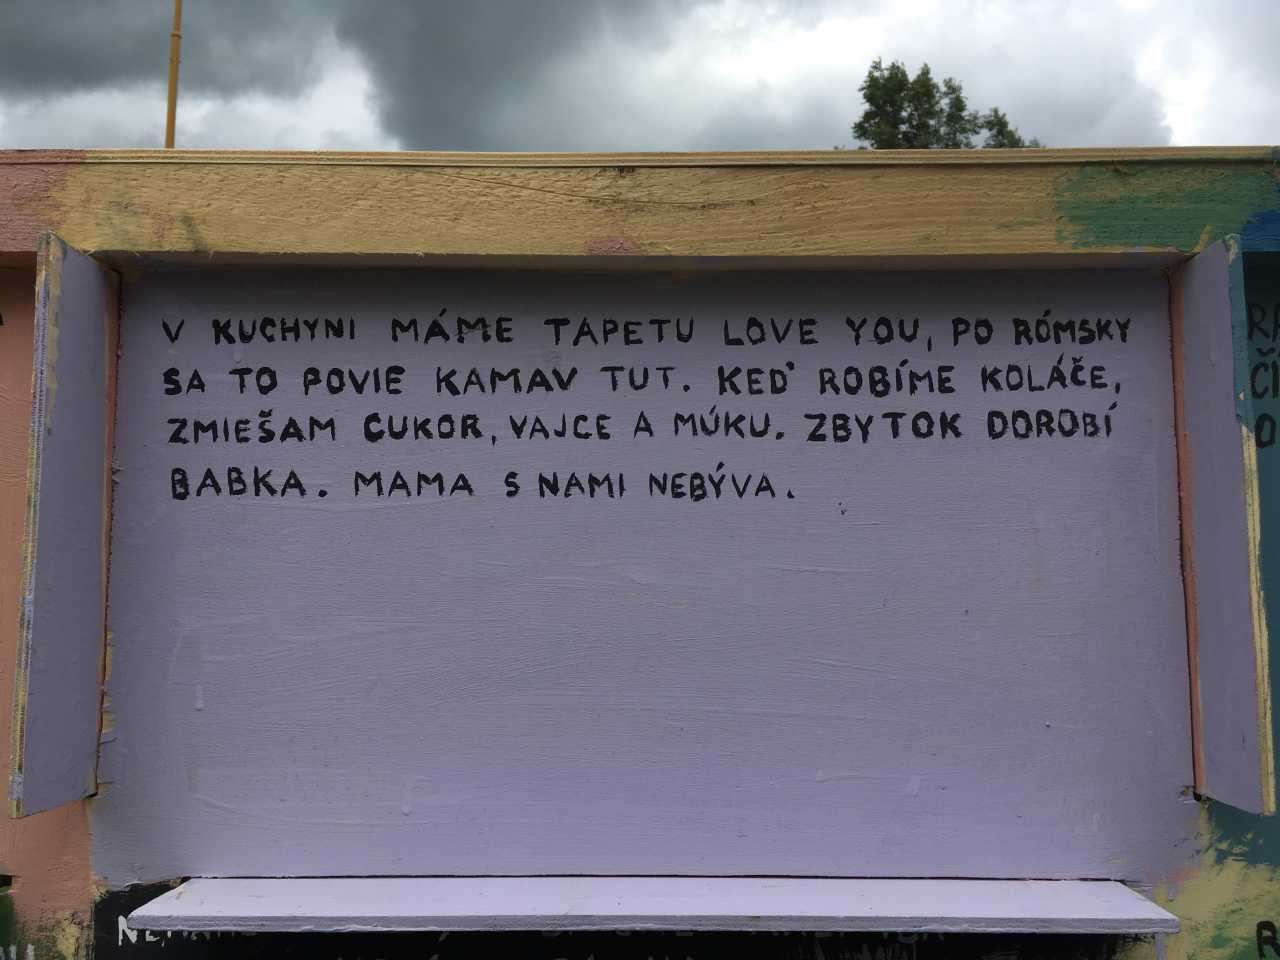 V KUCHYNI MÁME TAPETU LOVE YOU, PO RÓMSKY
SA TO POVIE KAMAV TUT. KEĎ ROBÍME KOLÁČE,
ZMIEŠAM CUKOR, VAJCE A MÚKU. ZBYTOK DOROBÍ
BABKA. MAMA S NAMI NEBÝVA.